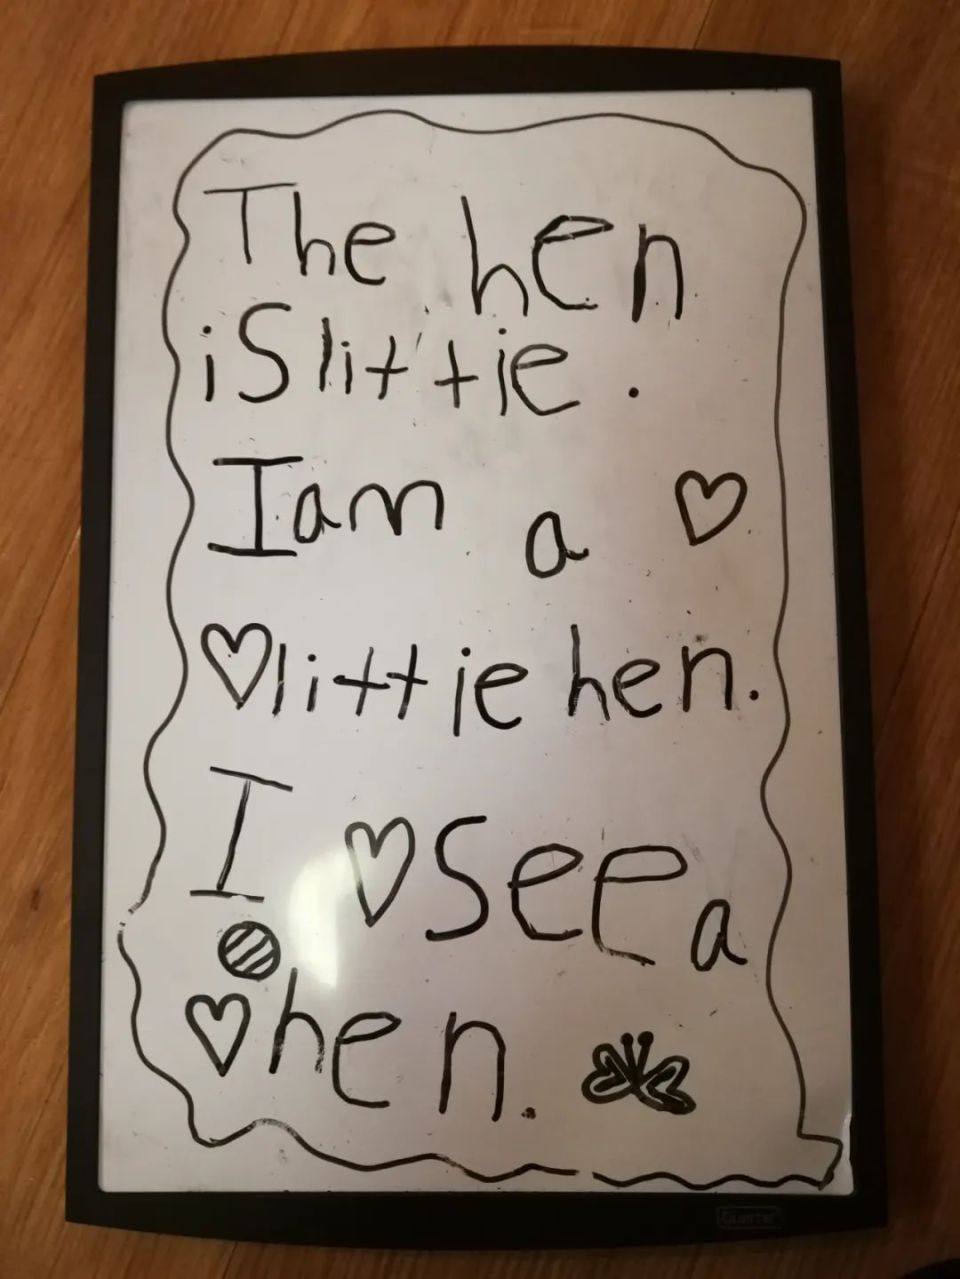 The hen
is littie.
I am a ♡
♡ littie hen.
I ♡ see a
♡ hen.